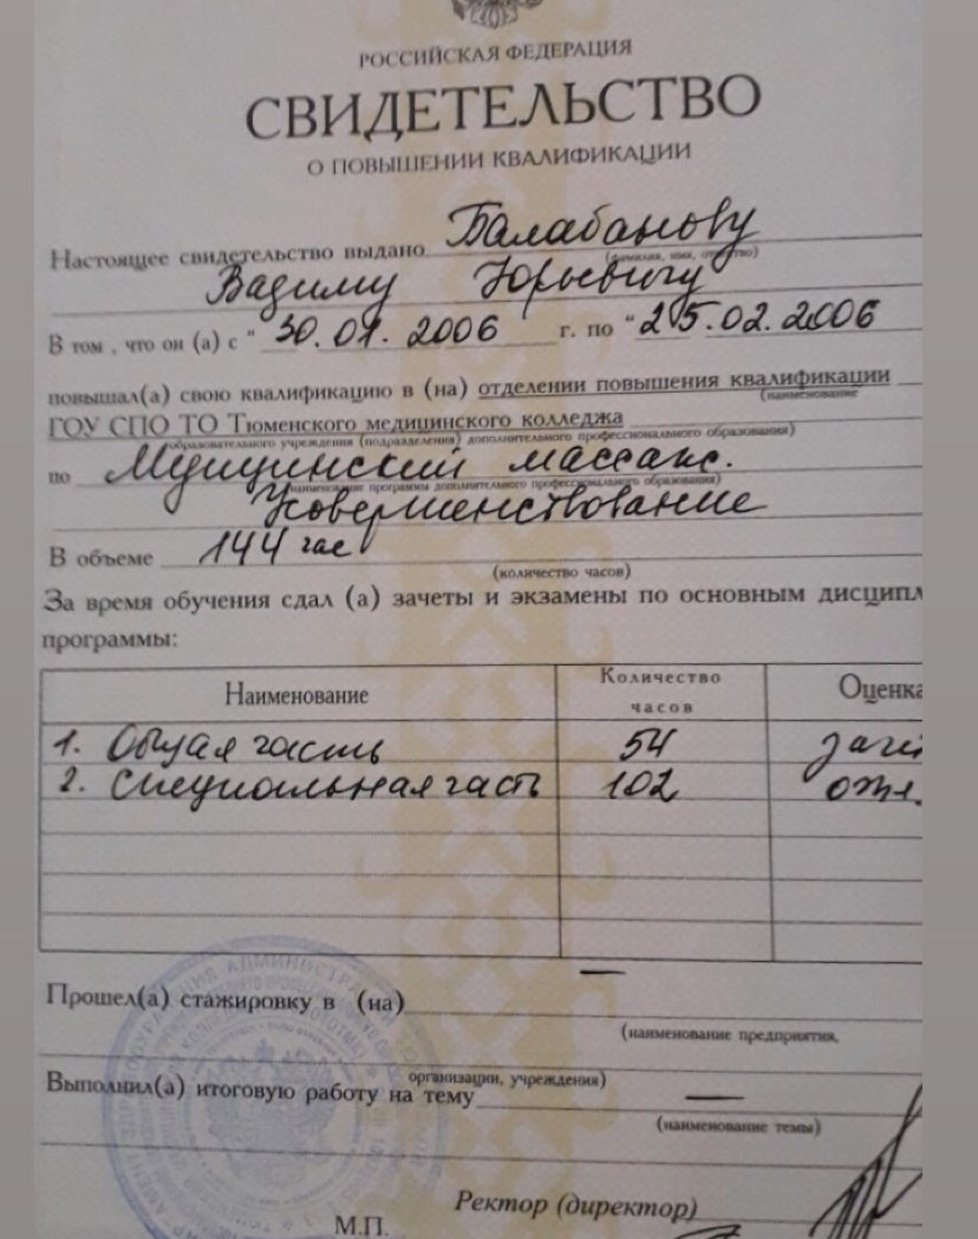 РОССИЙСКАЯ ФЕДЕРАЦИЯ
СВИДЕТЕЛЬСТВО
О ПОВЫШЕНИИ КВАЛИФИКАЦИИ
Настоящее свидетельство выдано Балабанову
(фамилия, имя, отчество)
Вадиму Юрьевичу
В том, что он (а) с "30.01.2006 г. по "25.02.2006
повышал(а) свою квалификацию в (на) отделении повышения квалификации
(наименование
ГОУ СПО ТО Тюменского медицинского колледжа
образовательного учреждения (подразделения) дополнительного профессионального образования)
по Медицинский массаж.
(наименование программы дополнительного профессионального образования)
Усовершенствование
В объеме 144 час
(количество часов)
За время обучения сдал (а) зачеты и экзамены по основным дисципл
программы:
Наименование Количество часов Оценка
1. Общая часть 54 зачё
2. Специальная часть 102 отл.
Прошел(а) стажировку в (на) —
(наименование предприятия,
организации, учреждения)
Выполнил(а) итоговую работу на тему —
(наименование темы)
Ректор (директор)
М.П.